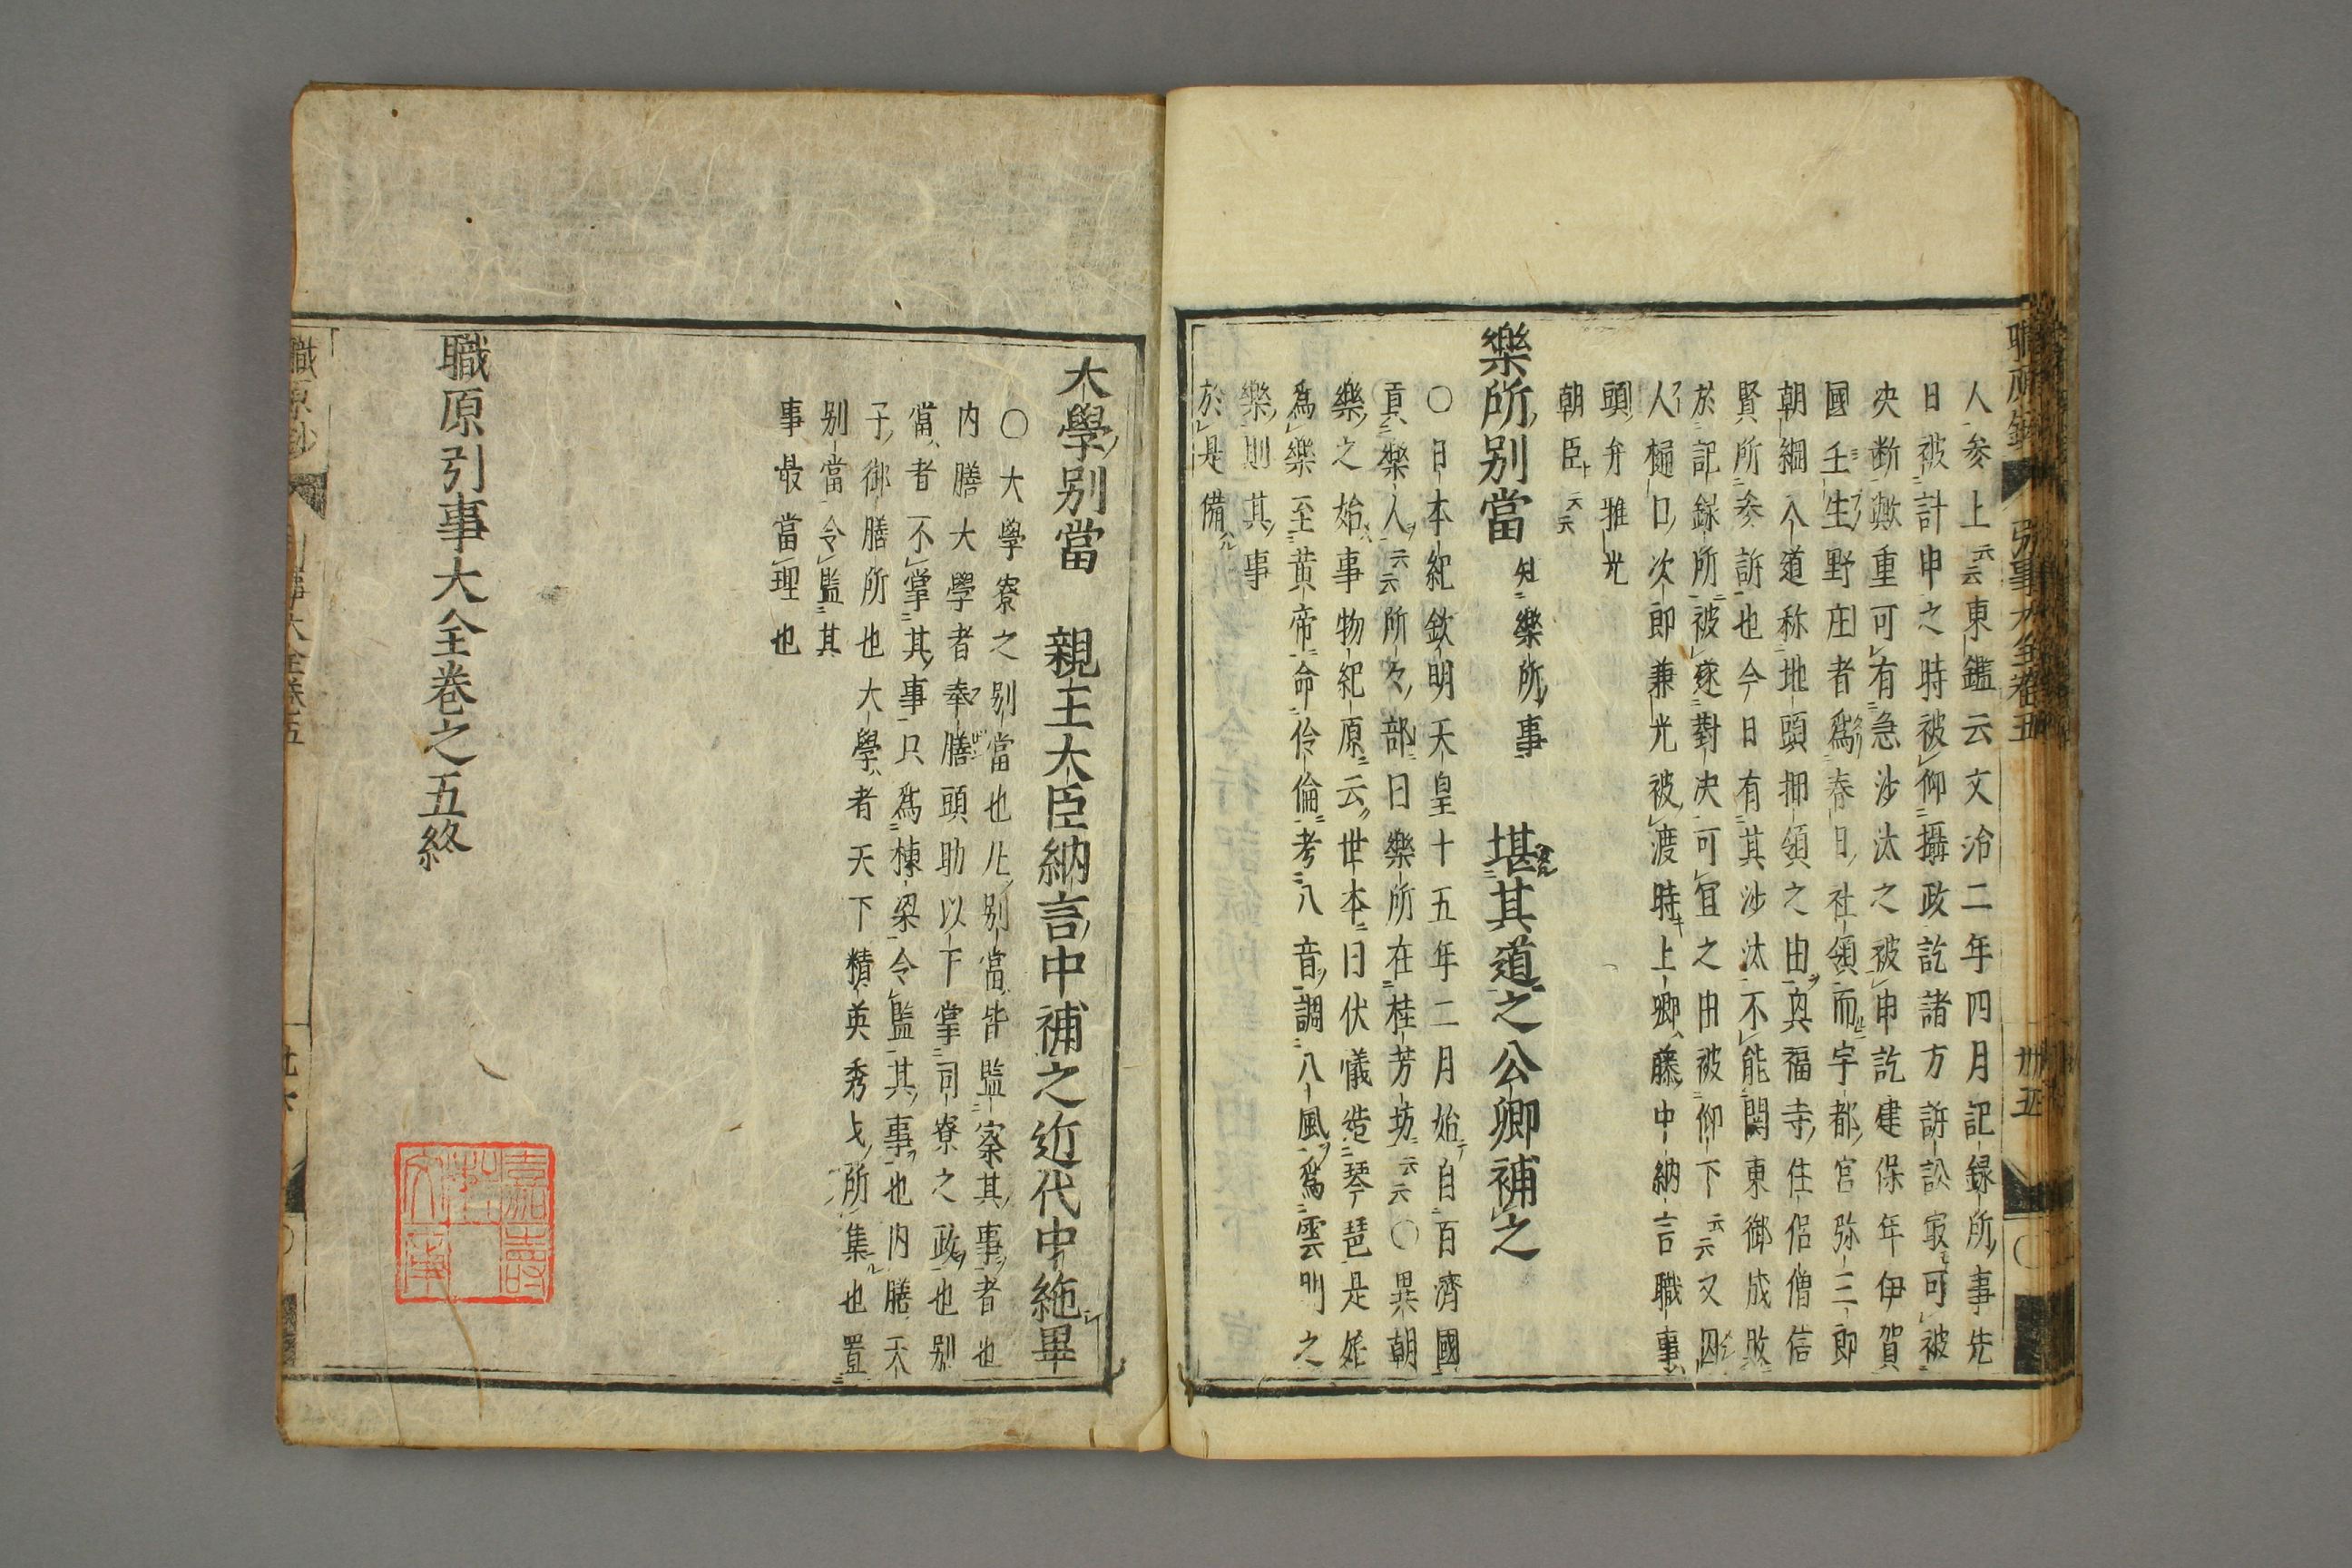 人参上云云東鑑云文治二年四月記録所事先
日被計申之時被仰攝政訖諸方訴訟㝡可被
决断歟重可有急沙汰之被申訖建保年伊賀
國壬生野庄者爲春日社領而宇都官弥三郎
朝綱入道称地頭押領之由真福寺住侶僧信
賢所参訴也今日有其沙汰不能関東御成敗
於記録所被遂對决可宜之由被仰下云云又四
人樋口次郎兼光被渡時上卿藤中納言職事
頭弁雅光
朝臣云云
樂所別當 知樂所事 堪其道之公卿補之
〇日本紀欽明天皇十五年二月始自百濟國
貢樂人云云所々部曰樂所在桂芳坊云云〇異朝
樂之始事物紀原云世本曰伏犠造琴琶是姙
爲樂至黄帝命伶倫考八音調八風爲雲門之
樂則其事
於是備
大學別當 親王大臣納言中補之近代中絁畢
〇大學寮之別當也凡別當皆監察其事者也
内膳大學者奉膳頭助以下掌司寮之政也別
當者不掌其事只爲棟梁令監其事也内膳天
子御膳所也大學者天下精英秀士所集也置
別當令監其
事最當理也
職原引事大全巻之五終
職原鈔
引事大全巻五
卅五